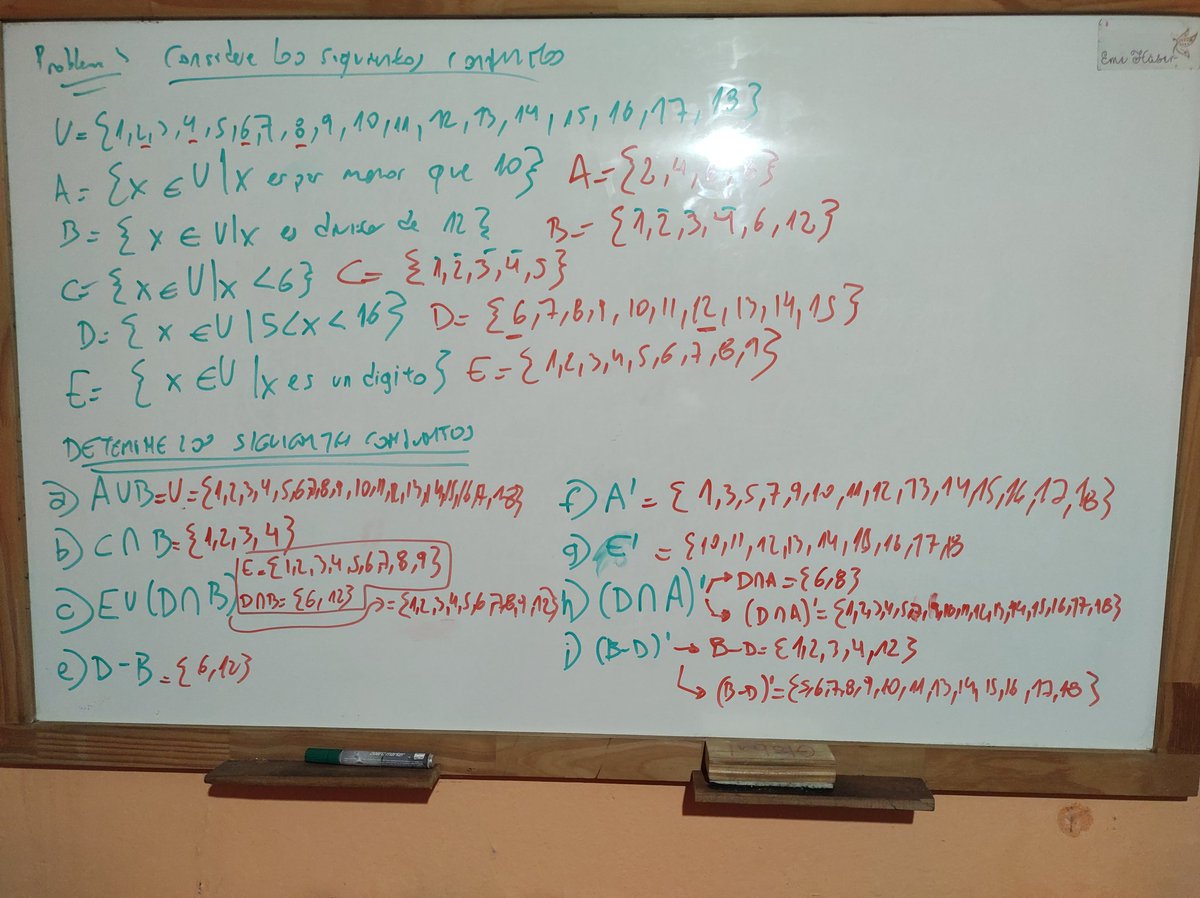 Problema Considere los siguientes conjuntos
Emi Haber
U={1,2,3,4,5,6,7,8,9,10,11,12,13,14,15,16,17,18}
A={x∈U|x es par menor que 10} A={2,4,6,8}
B={x∈U|x es divisor de 12} B={1,2,3,4,6,12}
C={x∈U|x<6} C={1,2,3,4,5}
D={x∈U|5<x<16} D={6,7,8,9,10,11,12,13,14,15}
E={x∈U|x es un digito} E={1,2,3,4,5,6,7,8,9}
DETERMINE LOS SIGUIENTES CONJUNTOS
a) A∪B=U={1,2,3,4,5,6,7,8,9,10,11,12,13,14,15,16,17,18}
b) C∩B={1,2,3,4}
E={1,2,3,4,5,6,7,8,9}
c) E∪(D∩B) D∩B={6,12} →={1,2,3,4,5,6,7,8,9,12}
e) D-B={6,12}
f) A'={1,3,5,7,9,10,11,12,13,14,15,16,17,18}
g) E'={10,11,12,13,14,15,16,17,18
h) (D∩A)' → D∩A={6,8}
→ (D∩A)'={1,2,3,4,5,7,9,10,11,12,13,14,15,16,17,18}
i) (B-D)' → B-D={1,2,3,4,12}
→ (B-D)'={5,6,7,8,9,10,11,13,14,15,16,17,18}